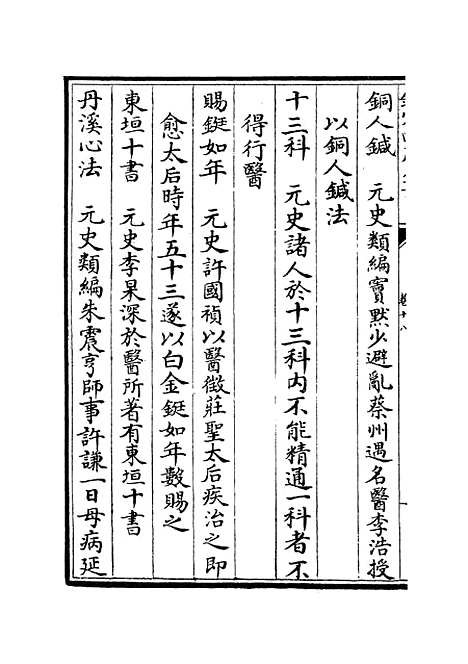 銅人鍼　元史類編竇默少避亂蔡州遇名醫李浩授
以銅人鍼法
十三科　元史諸人於十三科内不能精通一科者不
得行醫
賜鋌如年　元史許國禎以醫徵莊聖太后疾治之即
愈太后時年五十三遂以白金鋌如年數賜之
東垣十書　元史李杲深於醫所著有東垣十書
丹溪心法　元史類編朱震亨師事許謙一日母病延